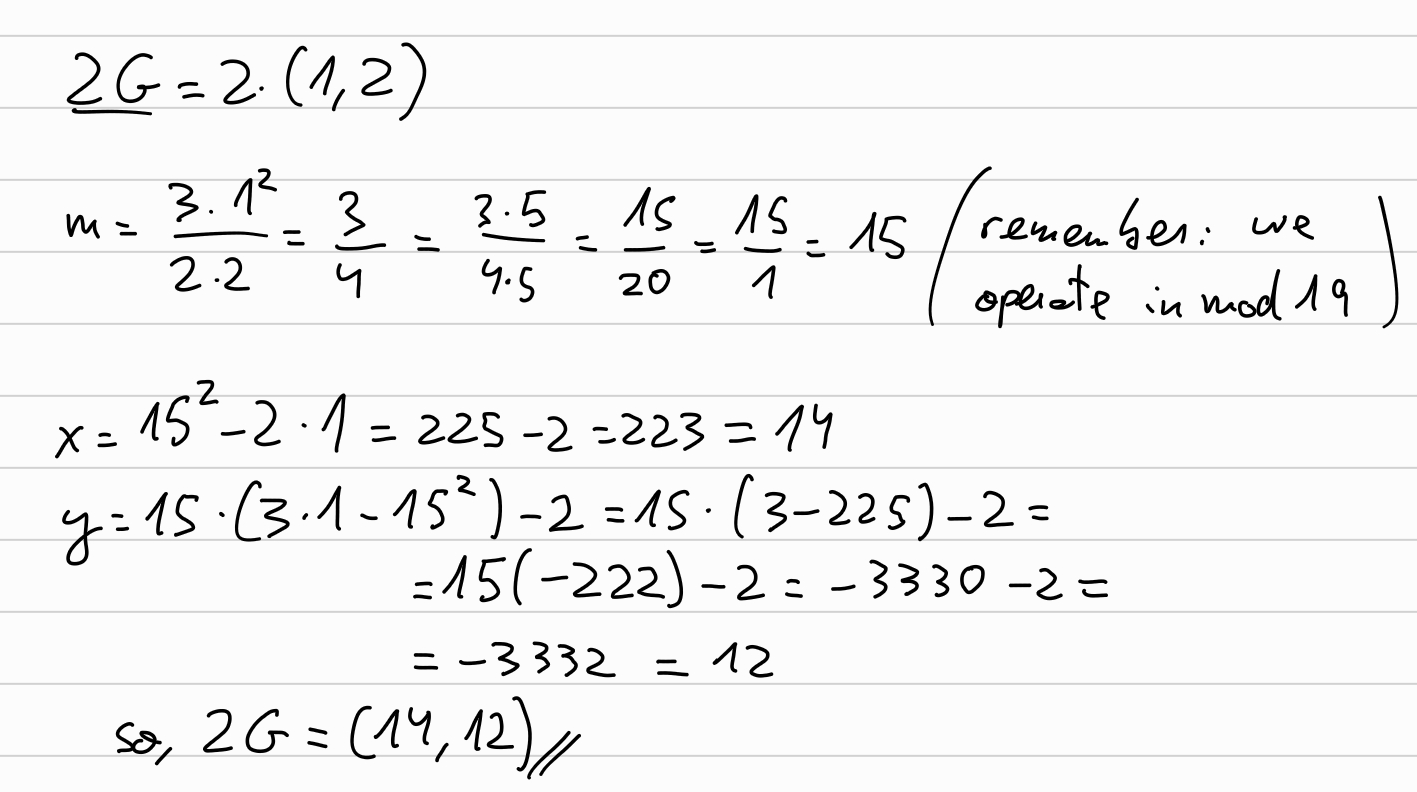 2G = 2·(1,2)
m = 3·1²/2·2 = 3/4 = 3·5/4·5 = 15/20 = 15/1 = 15 (remember: we operate in mod 19)
x = 15² - 2·1 = 225 - 2 = 223 = 14
y = 15·(3·1 - 15²) - 2 = 15·(3 - 225) - 2 =
= 15(-222) - 2 = -3330 - 2 =
= -3332 = 12
so, 2G = (14,12)//